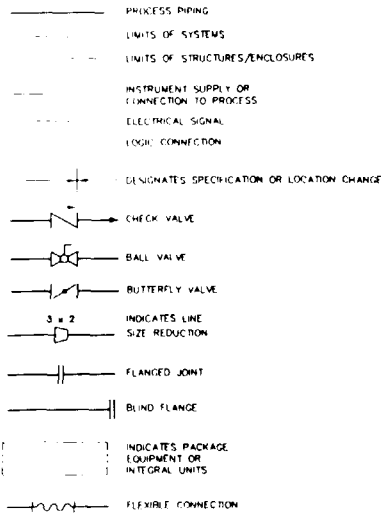 PROCESS PIPING
LIMITS OF SYSTEMS
LIMITS OF STRUCTURES/ENCLOSURES
INSTRUMENT SUPPLY OR
CONNECTION TO PROCESS
ELECTRICAL SIGNAL
LOGIC CONNECTION
DESIGNATES SPECIFICATION OR LOCATION CHANGE
CHECK VALVE
BALL VALVE
BUTTERFLY VALVE
3 x 2
INDICATES LINE
SIZE REDUCTION
FLANGED JOINT
BLIND FLANGE
INDICATES PACKAGE
EQUIPMENT OR
INTEGRAL UNITS
FLEXIBLE CONNECTION